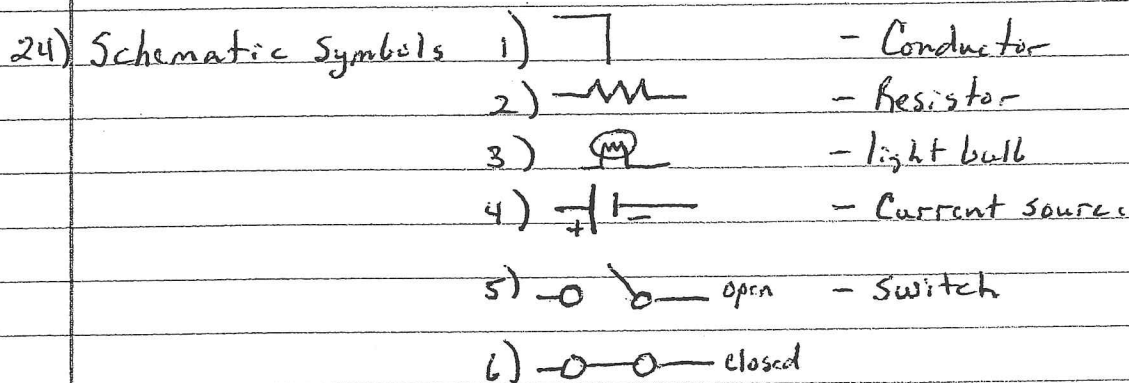 24) Schematic Symbols 1) - Conductor
2) - Resistor
3) - light bulb
4) + - - Current source
5) open - Switch
6) closed